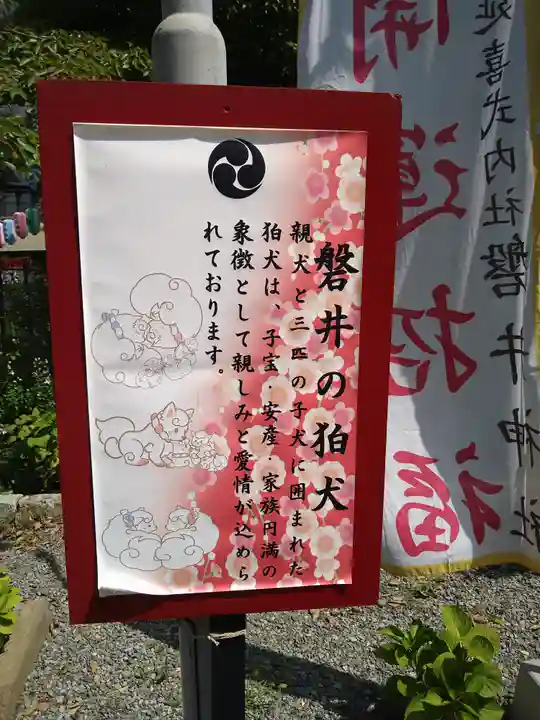 磐井の狛犬
親犬と三匹の子犬に囲まれた
狛犬は、子宝・安産・家族円満の
象徴として親しみと愛情が込めら
れております。
延喜式内社磐井神社
開運招福